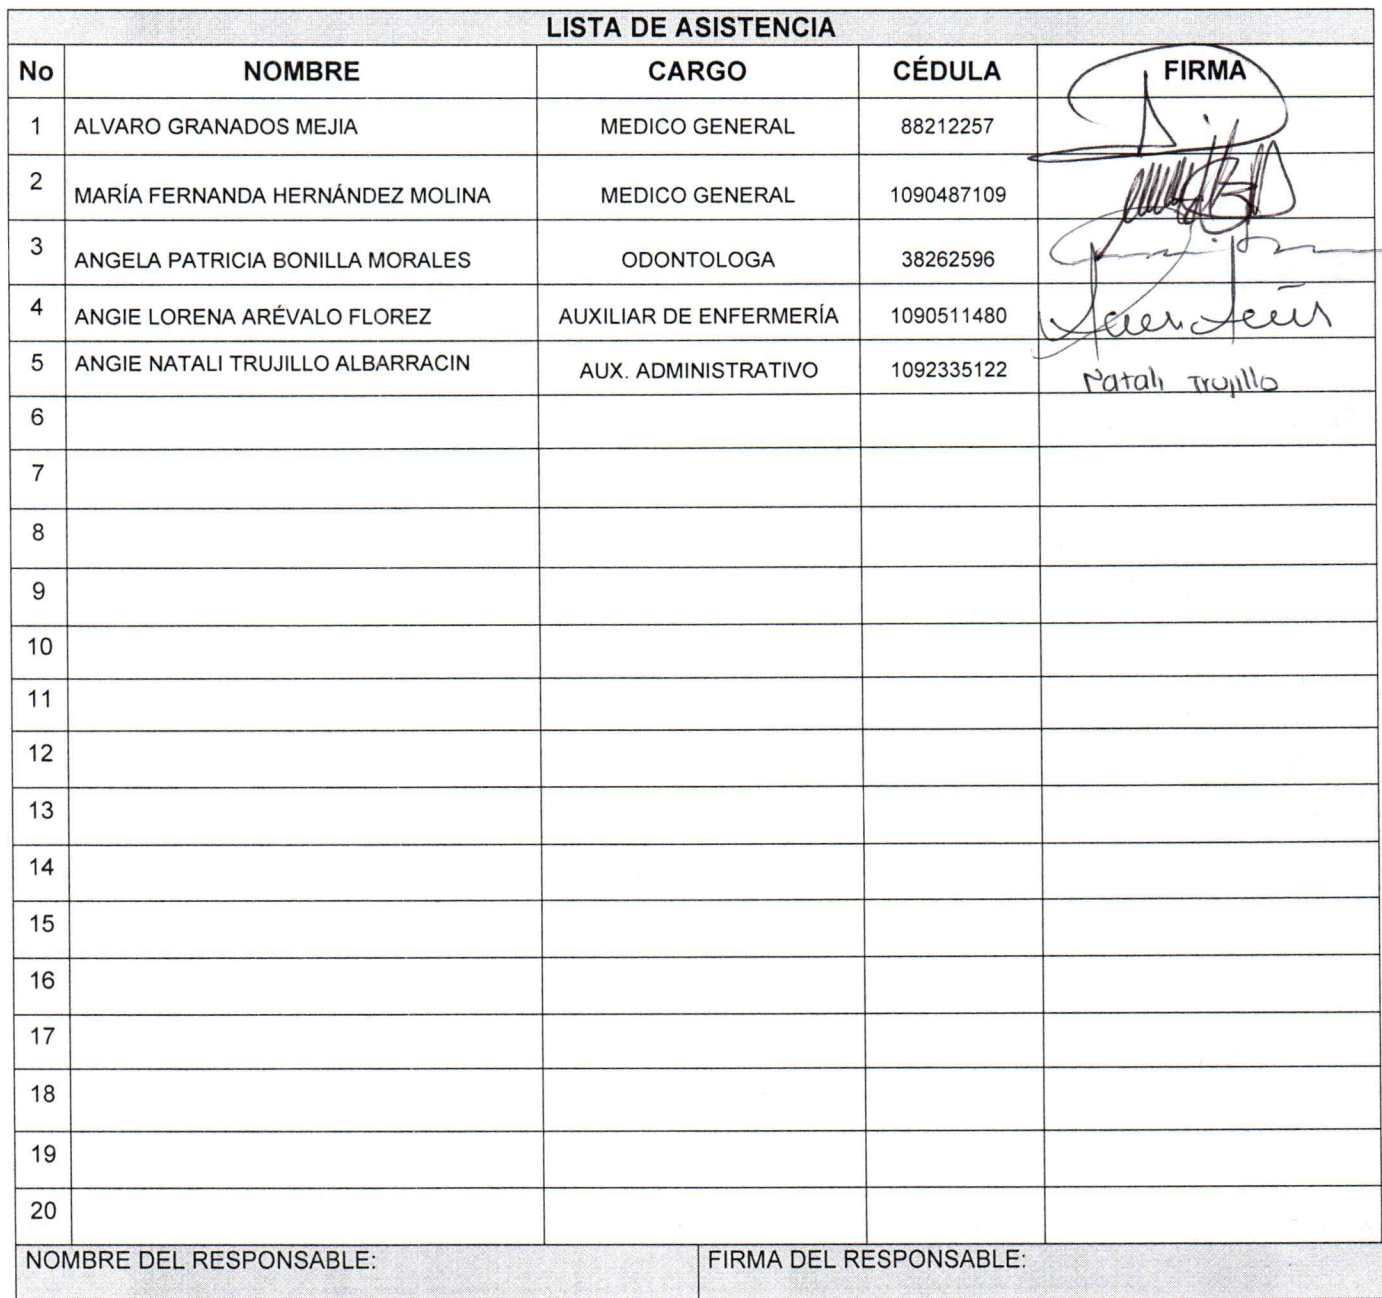 LISTA DE ASISTENCIA
No NOMBRE CARGO CÉDULA FIRMA
1 ALVARO GRANADOS MEJIA MEDICO GENERAL 88212257
2 MARÍA FERNANDA HERNÁNDEZ MOLINA MEDICO GENERAL 1090487109
3 ANGELA PATRICIA BONILLA MORALES ODONTOLOGA 38262596
4 ANGIE LORENA ARÉVALO FLOREZ AUXILIAR DE ENFERMERÍA 1090511480
5 ANGIE NATALI TRUJILLO ALBARRACIN AUX. ADMINISTRATIVO 1092335122 Natali Trujillo
6
7
8
9
10
11
12
13
14
15
16
17
18
19
20
NOMBRE DEL RESPONSABLE: FIRMA DEL RESPONSABLE: